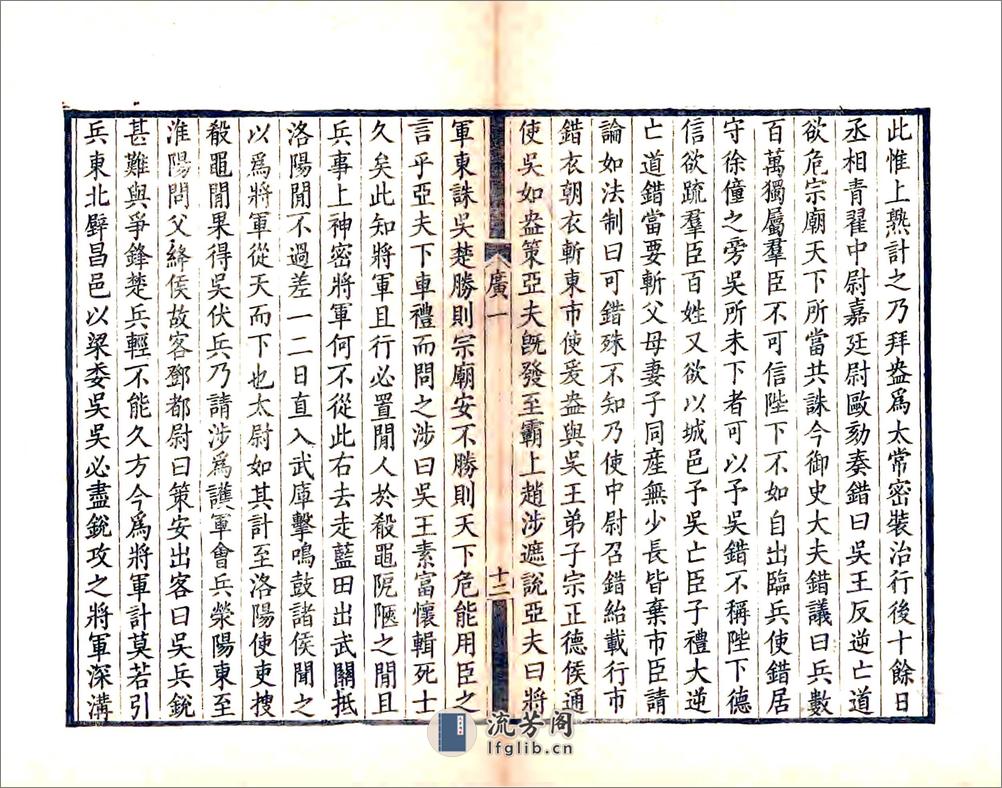 此惟上熟計之乃拜盎爲太常密裝治行後十餘日
丞相青翟中尉嘉廷尉歐劾奏錯曰吳王反逆亡道
欲危宗廟天下所當共誅今御史大夫錯議曰兵數
百萬獨屬羣臣不可信陛下不如自出臨兵使錯居
守徐僮之旁吳所未下者可以予吳錯不稱陛下德
信欲疏羣臣百姓又欲以城邑予吳亡臣子禮大逆
亡道錯當要斬父母妻子同産無少長皆棄市臣請
論如法制曰可錯殊不知乃使中尉召錯紿載行市
錯衣朝衣斬東市使爰盎與吳王弟子宗正德侯通
使吳如盎策亞夫旣發至霸上趙涉遮說亞夫曰將
廣一
十三
軍東誅吳楚勝則宗廟安不勝則天下危能用臣之
言乎亞夫下車禮而問之涉曰吳王素富懷輯死士
久矣此知將軍且行必置閒人於殽黽阨陿之閒且
兵事上神密將軍何不從此右去走藍田出武關抵
洛陽閒不過差一二日直入武庫擊鳴鼓諸侯聞之
以爲將軍從天而下也太尉如其計至洛陽使吏搜
殽黽閒果得吳伏兵乃請涉爲護軍會兵滎陽東至
淮陽問父絳侯故客鄧都尉曰策安出客曰吳兵銳
甚難與爭鋒楚兵輕不能久方今爲將軍計莫若引
兵東北壁昌邑以梁委吳吳必盡銳攻之將軍深溝
流芳阁
lfglib.cn